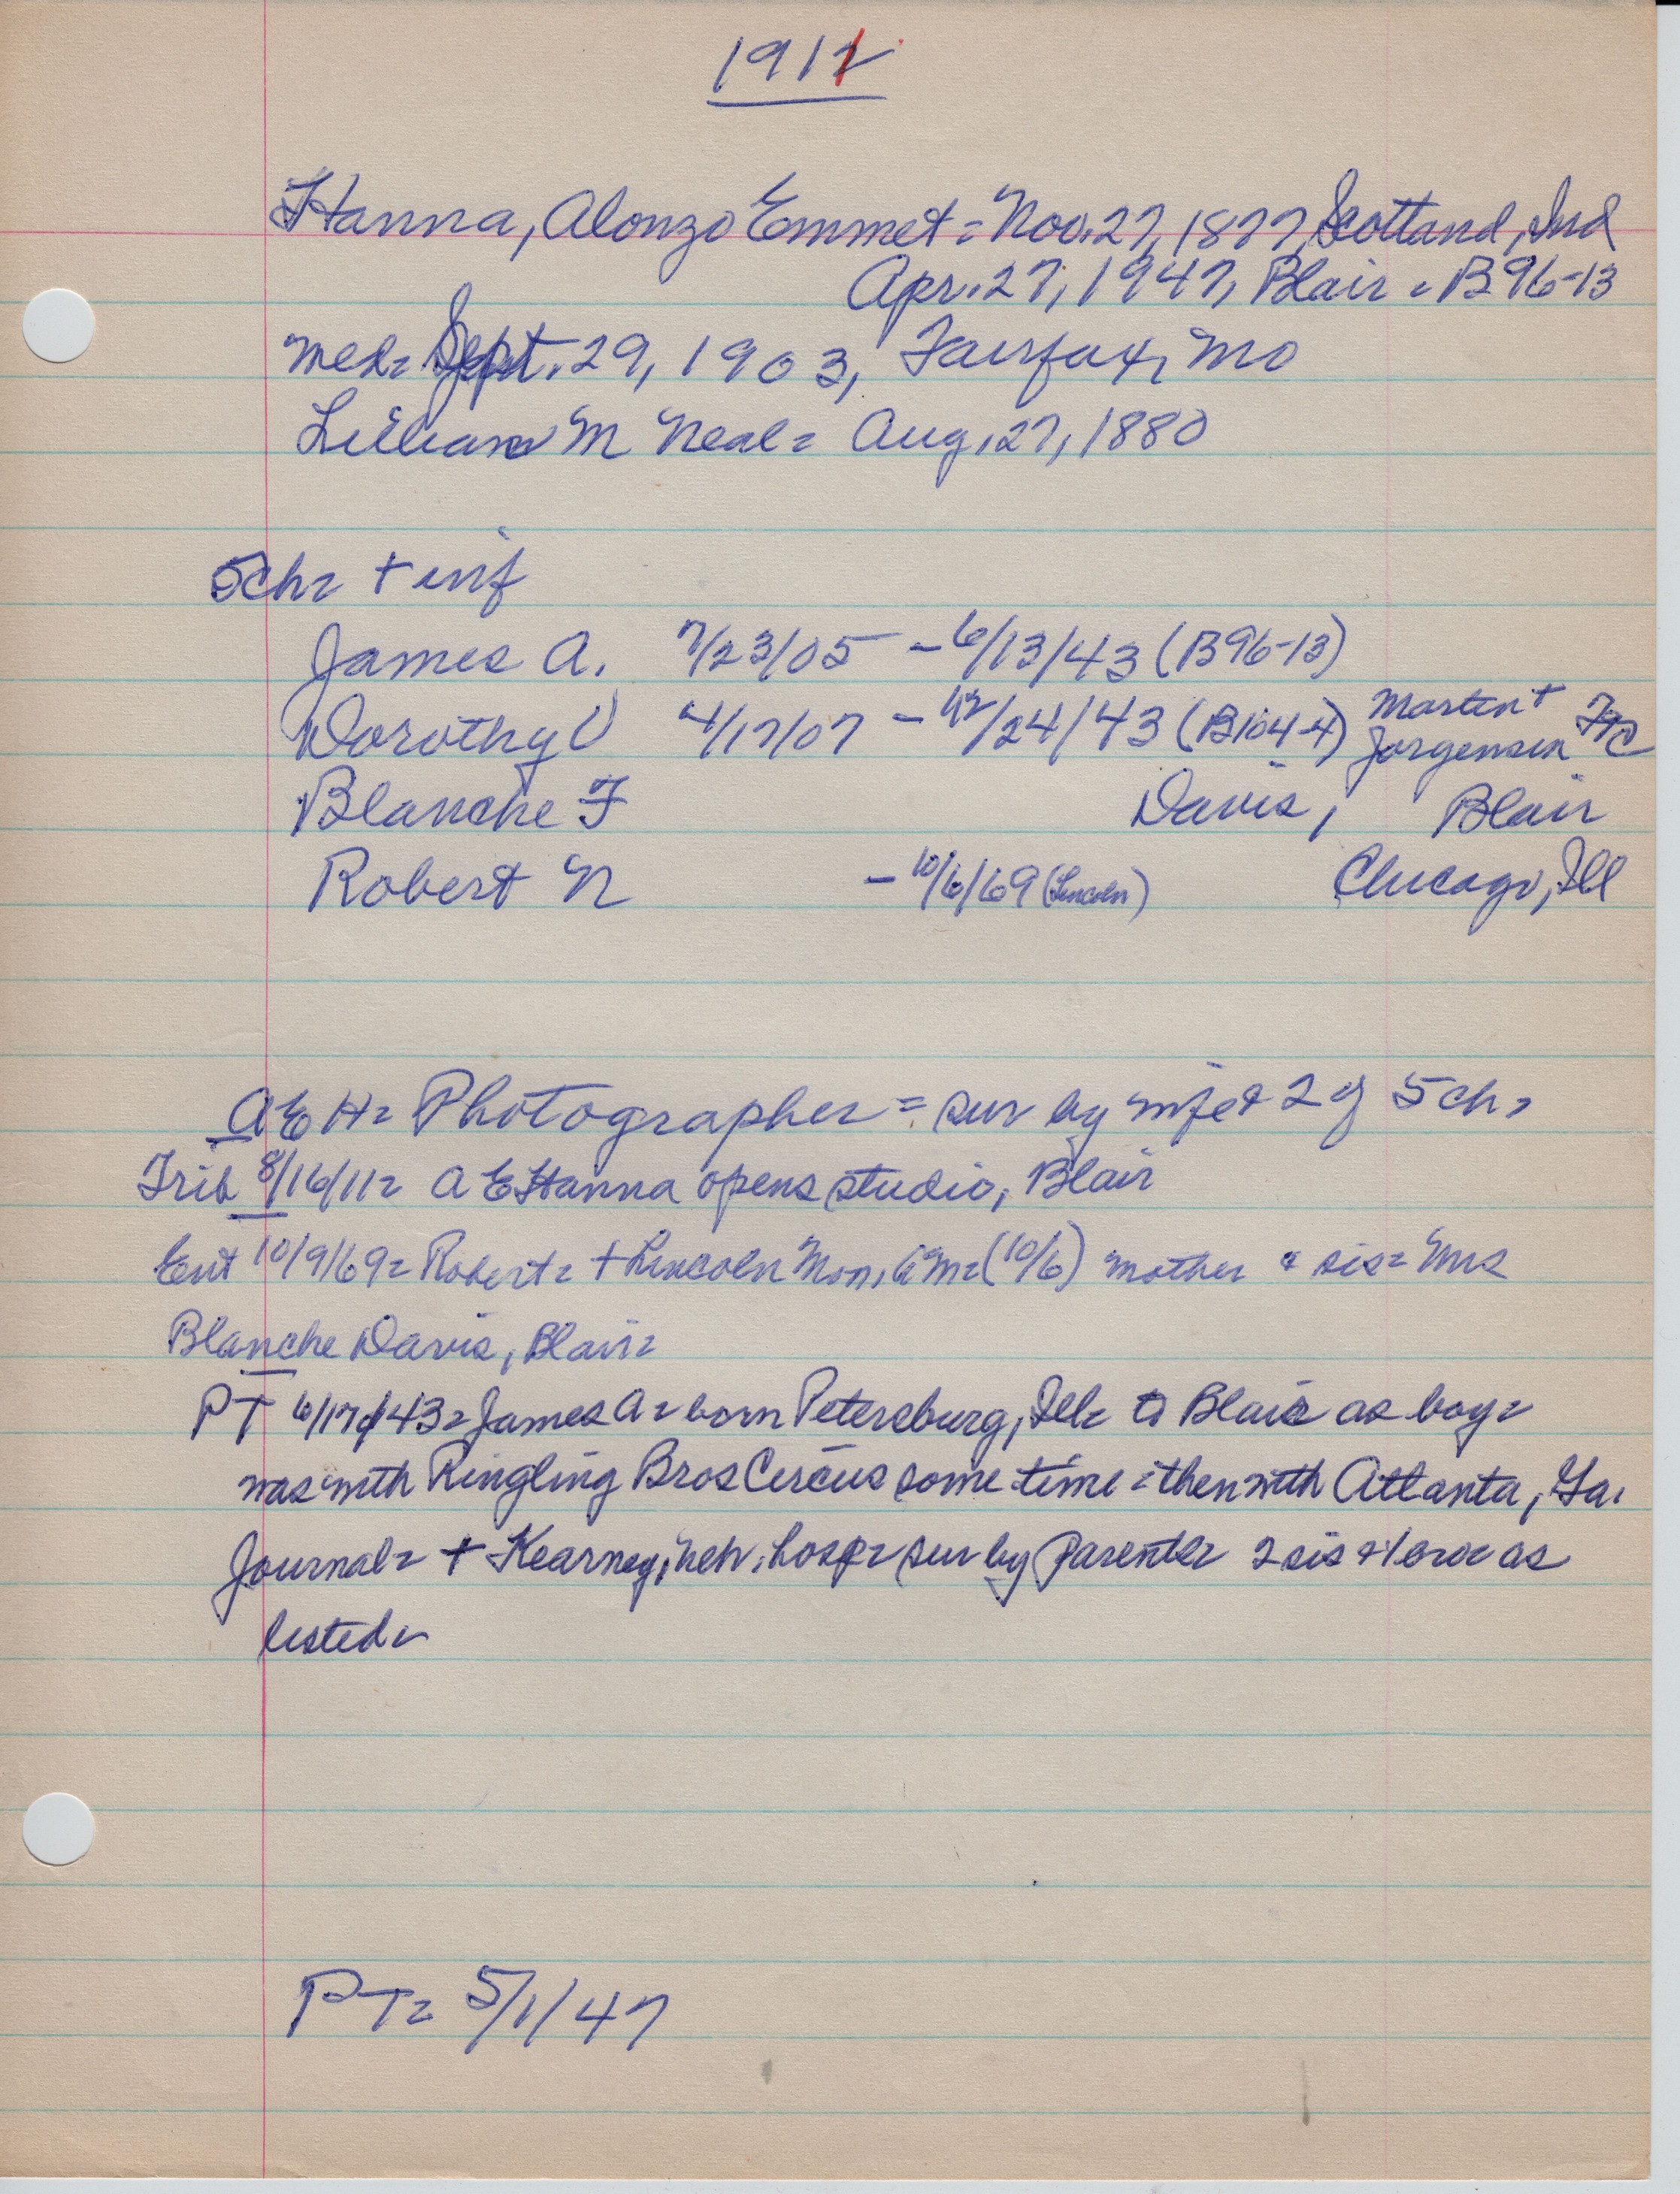 1911
Hanna, Alonzo Emmet = Nov. 27, 1877, Scotland, Ind
Apr. 27, 1947, Blair = B96-13
med = Sept. 29, 1903, Fairfax, Mo
Lillian M Neal = Aug. 27, 1880
5ch = + inf
James A. 7/23/05 - 6/13/43 (B96-13)
Dorothy 4/17/07 - 12/24/43 (B104-4) Martin +
Jorgensen
Blanche F Davis, Blair
Robert N - 10/6/69 (Lincoln) Chicago, Ill
A E H = Photographer = sur by wife & 2 of 5 ch =
Trib 8/16/11 = A E Hanna opens studio, Blair
Ent 10/9/69 = Robert = + Lincoln Mon. (10/6) mother & sis = Mrs
Blanche Davis, Blair =
PT 6/17/43 = James A = born Petersburg, Ill = to Blair as boy =
was with Ringling Bros Circus some time = then with Atlanta, Ga.
Journal = + Kearney, Neb. hosp = sur by parents = 2 sis & 1 bro as
listed =
PT = 5/1/47